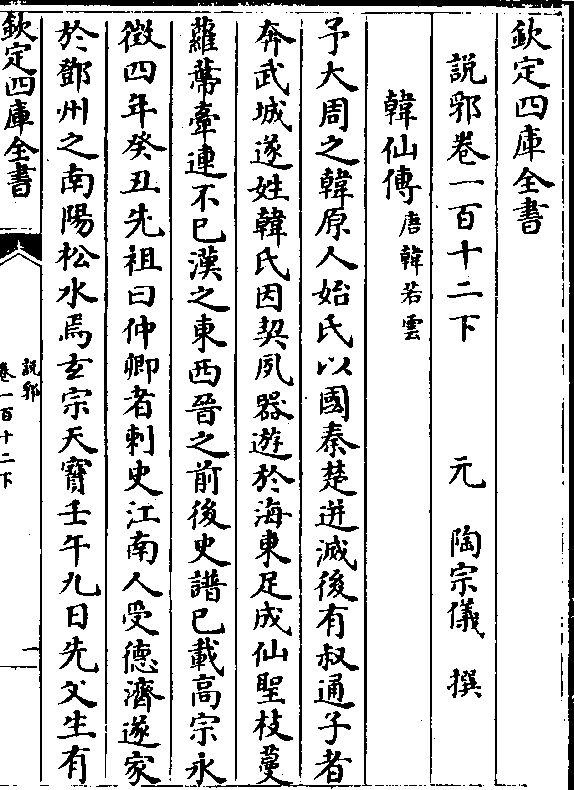 欽定四庫全書
說郛卷一百十二下　元　陶宗儀　撰
韓仙傳唐韓若雲
予大周之韓原人始氏以國秦楚迸滅後有叔通子者
奔武城遂姓韓氏因契夙器遊於海東足成仙聖枝蔓
蘿蔦牽連不已漢之東西晉之前後史譜已載髙宗永
徽四年癸丑先祖曰仲卿者刺史江南人受德濟遂家
於鄧州之南陽松水焉玄宗天寶壬午九日先父生有
欽定四庫全書
說郛
卷一百十二下
一